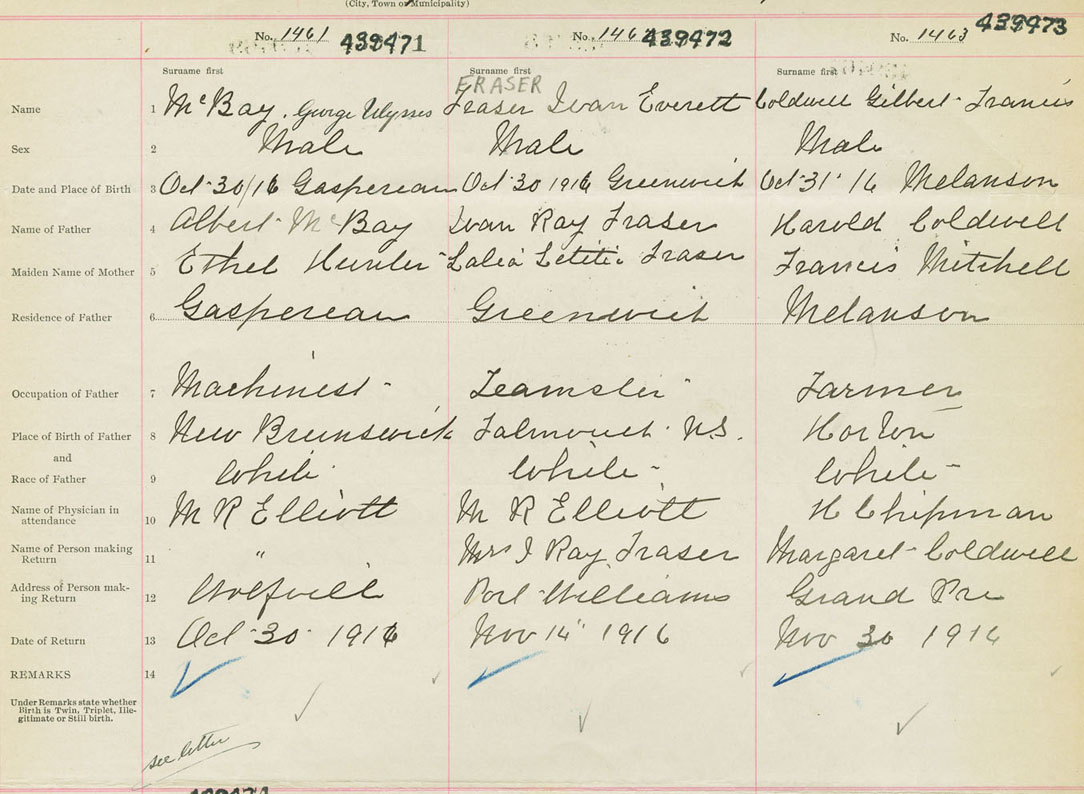 (City, Town or Municipality)
No. 1461 439471 No. 146 439472 No. 1463 439473
Surname first Surname first Surname first
FRASER
Name 1 McBay, George Ulysses Fraser Ivan Everett Coldwell Gilbert Francis
Sex 2 Male Male Male
Date and Place of Birth 3 Oct 30/16 Gaspereau Oct 30 1916 Greenwich Oct 31 16 Melanson
Name of Father 4 Albert McBay Ivan Ray Fraser Harold Coldwell
Maiden Name of Mother 5 Ethel Hunter Lalia Letitia Fraser Francis Mitchell
Residence of Father 6 Gaspereau Greenwich Melanson
Occupation of Father 7 Machinist Teamster Farmer
Place of Birth of Father 8 New Brunswick Falmouth N.S. Horton
and
Race of Father 9 White White White
Name of Physician in
attendance 10 M R Elliott M R Elliott H Chipman
Name of Person making
Return 11 " Mrs I Ray Fraser Margaret Coldwell
Address of Person mak-
ing Return 12 Wolfvill Port Williams Grand Pre
Date of Return 13 Oct 30 1916 Nov 14 1916 Nov 30 1916
REMARKS 14
Under Remarks state whether
Birth is Twin, Triplet, Ille-
gitimate or Still birth.
see letter